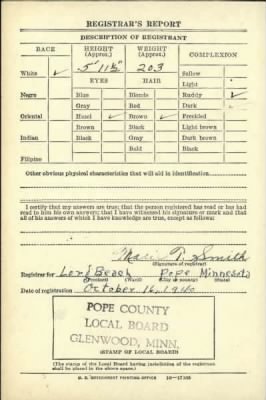 REGISTRAR'S REPORT
DESCRIPTION OF REGISTRANT
RACE HEIGHT (Approx.) WEIGHT (Approx.) COMPLEXION
5' 11½" 203
White ✓ Sallow
EYES HAIR Light
Negro Blue Blonde Ruddy ✓
Gray Red Dark
Oriental Hazel ✓ Brown ✓ Freckled
Brown Black Light brown
Indian Black Gray Dark brown
Bald Black
Filipino
Other obvious physical characteristics that will aid in identification
I certify that my answers are true; that the person registered has read or has
had read to him his own answers; that I have witnessed his signature or mark and that
all of his answers of which I have knowledge are true, except as follows:
T. Smith
(Signature of registrar)
Registrar for Long Beach Pope Minnesota
(Precinct) (Ward) (City or county) (State)
Date of registration October 16, 1940
POPE COUNTY
LOCAL BOARD
GLENWOOD, MINN.
(STAMP OF LOCAL BOARD)
(The stamp of the Local Board having jurisdiction of the registrant
shall be placed in the above space.)
U. S. GOVERNMENT PRINTING OFFICE